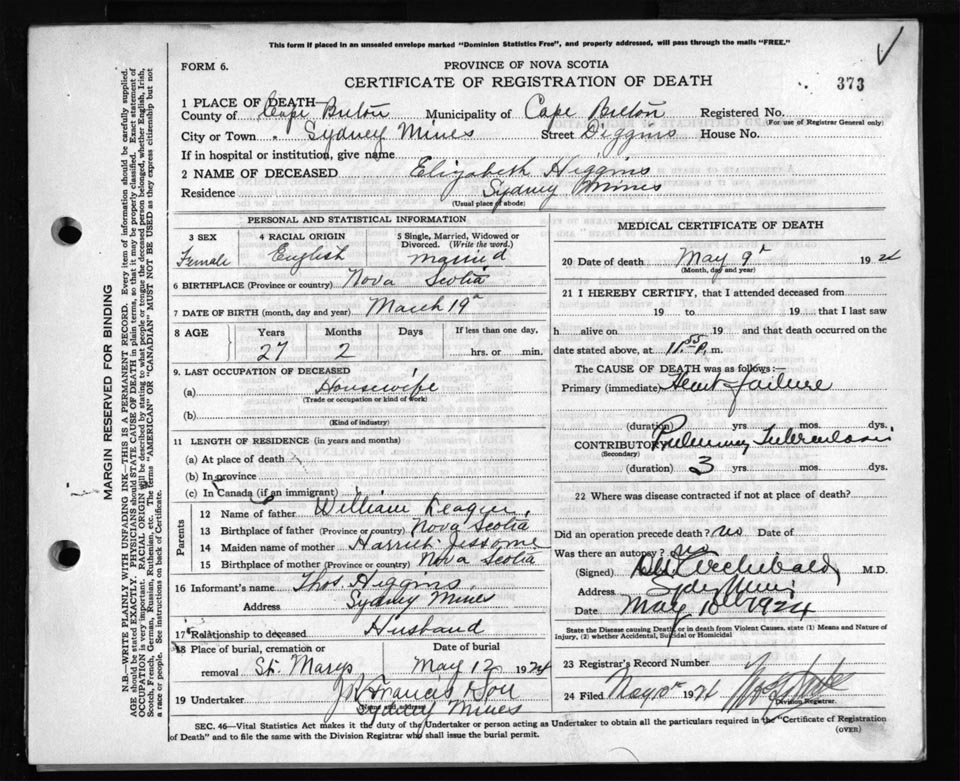 This form if placed in an unsealed envelope marked "Dominion Statistics Free", and properly addressed, will pass through the mails "FREE."
FORM 6.
PROVINCE OF NOVA SCOTIA
CERTIFICATE OF REGISTRATION OF DEATH
373
1 PLACE OF DEATH—
County of Cape Breton Municipality of Cape Breton Registered No.
(For use of Registrar General only)
City or Town Sydney Mines Street Diggins House No.
If in hospital or institution, give name
2 NAME OF DECEASED Elizabeth Higgins
Residence Sydney Mines
(Usual place of abode)
MARGIN RESERVED FOR BINDING
N.B.—WRITE PLAINLY WITH UNFADING INK—THIS IS A PERMANENT RECORD. Every item of information should be carefully supplied.
AGE should be stated EXACTLY. PHYSICIANS should STATE CAUSE OF DEATH in plain terms, so that it may be properly classified. Exact statement of
OCCUPATION is very important. RACIAL ORIGIN will be described by stating to what people or tongue the deceased person belonged, whether English, Irish,
Scotch, French, German, Russian, Ruthenian, etc. The terms "AMERICAN" OR "CANADIAN" MUST NOT BE USED as they express citizenship but not
a race or people. See instructions on back of Certificate.
PERSONAL AND STATISTICAL INFORMATION
3 SEX
Female
4 RACIAL ORIGIN
English
5 Single, Married, Widowed or
Divorced. (Write the word.)
married
6 BIRTHPLACE (Province or country) Nova Scotia
7 DATE OF BIRTH (month, day and year) March 19
8 AGE Years Months Days If less than one day,
27 2 hrs. or min.
9. LAST OCCUPATION OF DECEASED
(a) Housewife
(Trade or occupation or kind of work)
(b)
(Kind of industry)
11 LENGTH OF RESIDENCE (in years and months)
(a) At place of death
(b) In province
(c) In Canada (if an immigrant)
Parents
12 Name of father William
13 Birthplace of father (Province or country) Nova Scotia
14 Maiden name of mother Harriet Jessome
15 Birthplace of mother (Province or country) Nova Scotia
16 Informant's name Thos. Higgins
Address Sydney Mines
17 Relationship to deceased Husband
18 Place of burial, cremation or Date of burial
removal St. Marys May 12 1924
19 Undertaker J Francis & Son
Name and address
Sydney Mines
MEDICAL CERTIFICATE OF DEATH
20 Date of death May 9 1924
(Month, day and year)
21 I HEREBY CERTIFY, that I attended deceased from
19 to 19 that I last saw
h alive on 19 and that death occurred on
date stated above, at 11.55 P. m.
The CAUSE OF DEATH was as follows:—
Primary (immediate) Heart failure
(duration) yrs. mos. dys.
CONTRIBUTORY Pulmonary Tuberculosis
(Secondary)
(duration) 3 yrs. mos. dys.
22 Where was disease contracted if not at place of death?
Did an operation precede death? no Date of
Was there an autopsy? no
(Signed) Archibald M.D.
Address Sydney Mines
Date May 10 1924
State the Disease causing Death, or in death from Violent Causes, state (1) Means and Nature of
Injury, (2) whether Accidental, Suicidal or Homicidal
23 Registrar's Record Number
24 Filed May 10 1924
Division Registrar.
SEC. 46—Vital Statistics Act makes it the duty of the Undertaker or person acting as Undertaker to obtain all the particulars required in the "Certificate of Registration
of Death" and to file the same with the Division Registrar who shall issue the burial permit.
(OVER)